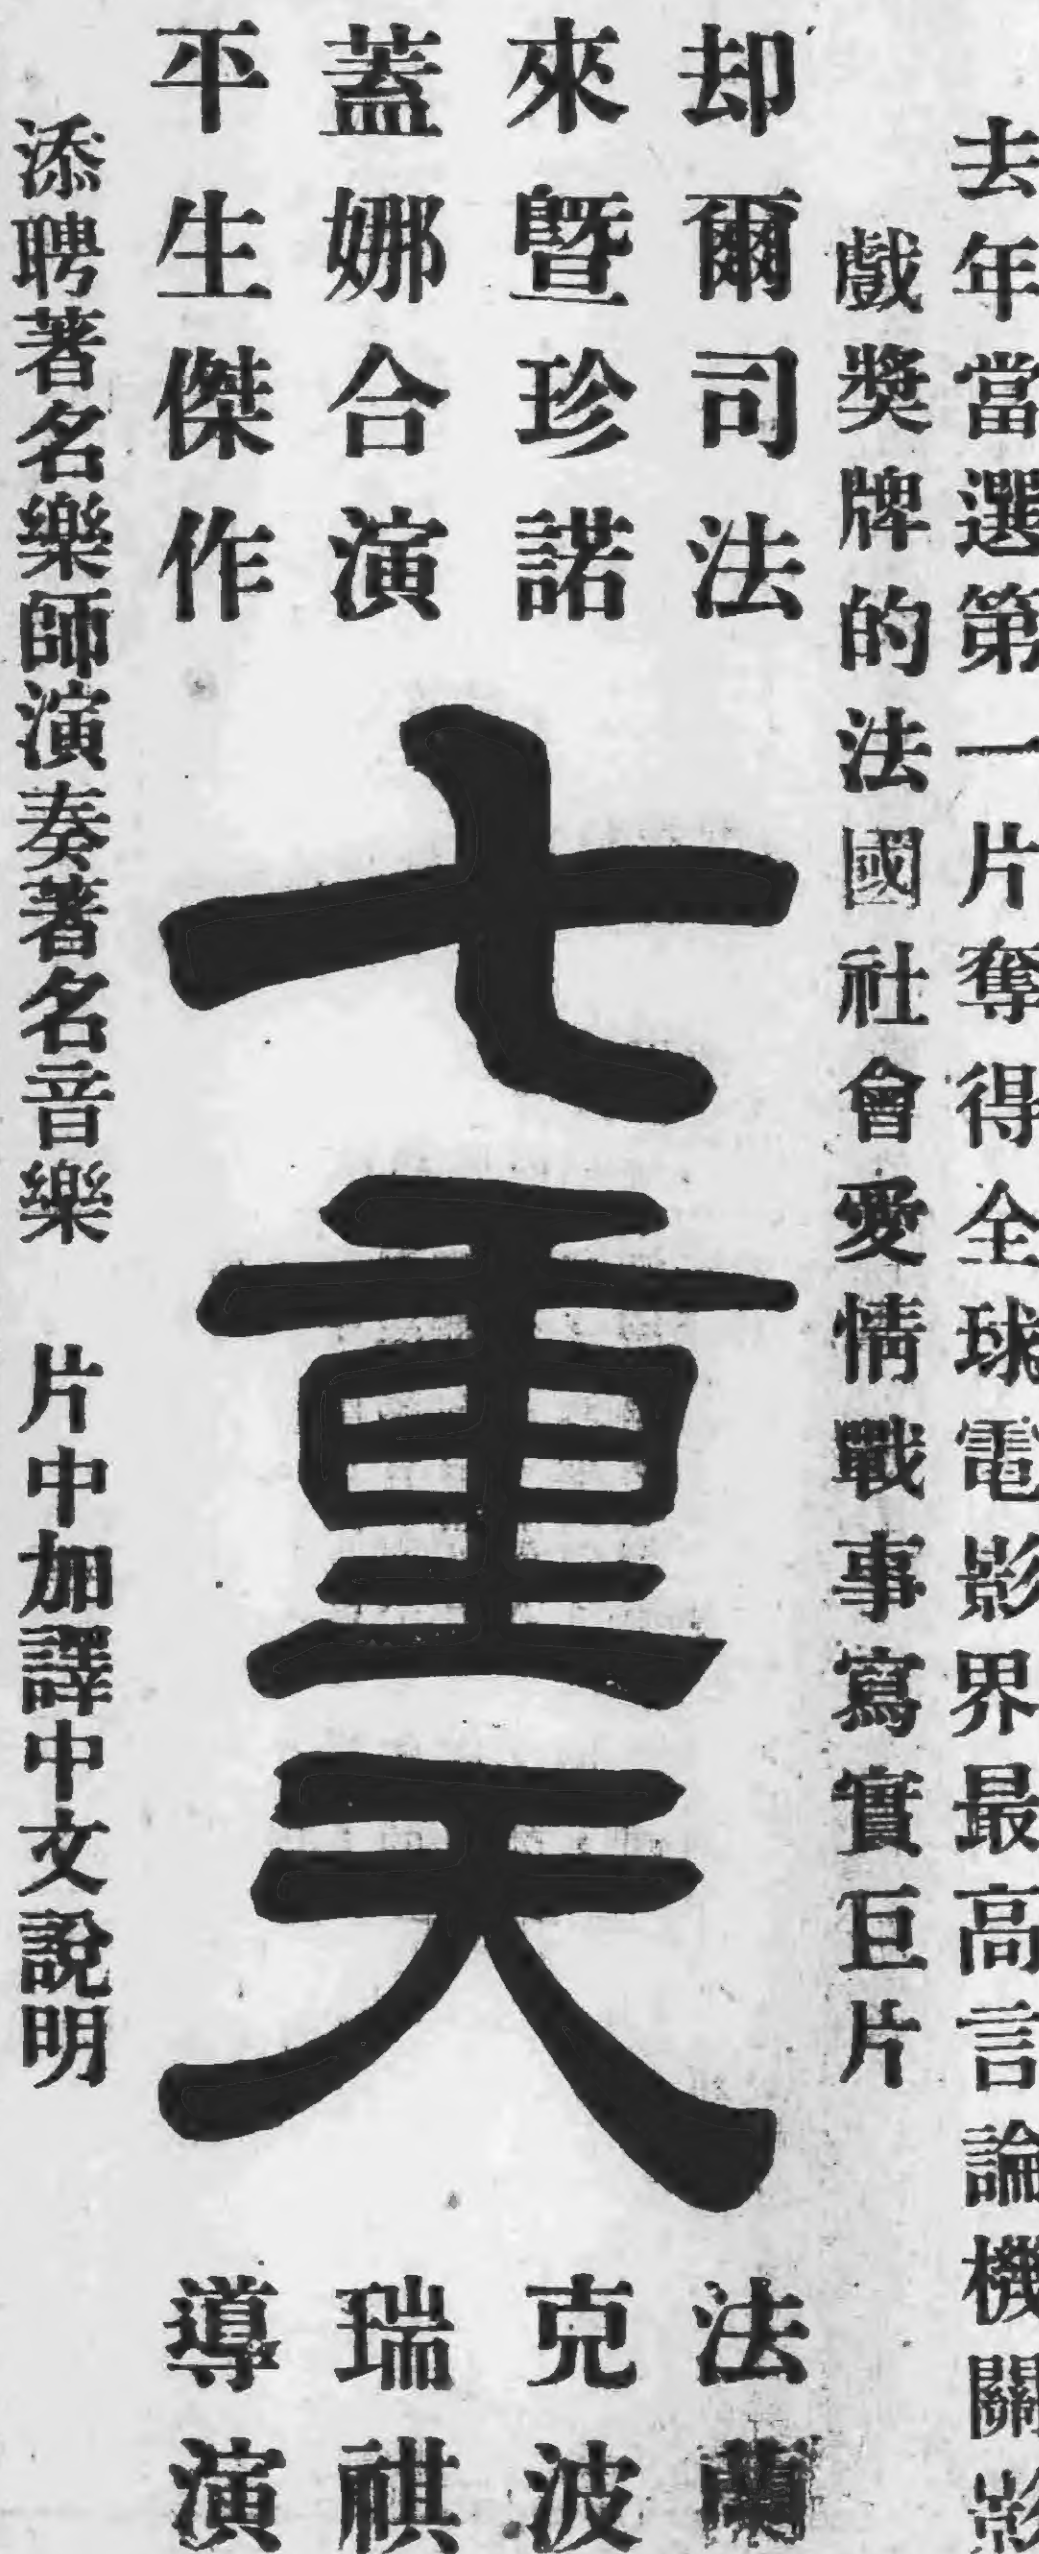 去年當選第一片奪得全球電影界最高言論機關影
戲獎牌的法國社會愛情戰事寫實巨片
却爾司法
來暨珍諾
蓋娜合演
平生傑作
七重天
法蘭
克波
瑞祺
導演
添聘著名樂師演奏著名音樂 片中加譯中文說明